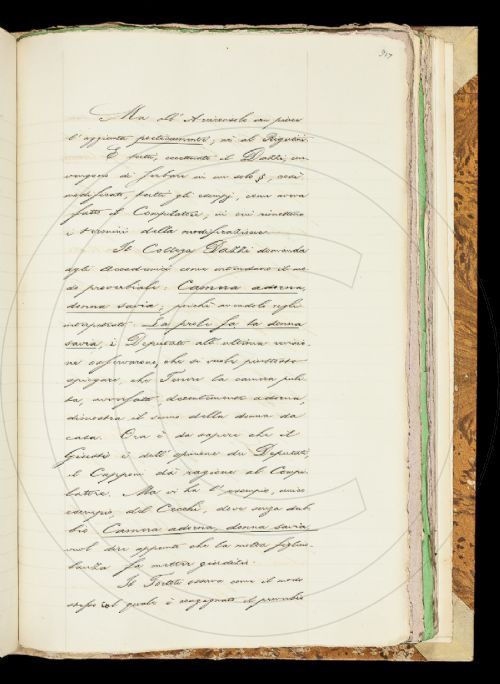 317
Ma all' Arciconsolo non piace
l'aggiunta posteriormente, nè al Rigutini.
E tutti, eccettuato il Dalzi, con-
vengono di serbare in un solo §, così
modificato, tutti gli esempj, come aveva
fatto il Compilatore, in cui rimettere
i termini della modificazione.
Il Collega Dalzi domanda
agli Accademici come intendano il mo-
do proverbiale: Camera adorna,
donna savia; poichè avendolo egli
interpretato: La prole fa la donna
savia, i Deputati alla ultima revisio-
ne osservarono, che si vuole piuttosto
spiegare, che Tenere la camera puli-
ta, assettata, decentemente adorna,
dimostra il senno della donna da
casa. Ora è da sapere che il
Giusti è dell'opinione dei Deputati,
il Capponi dà ragione al Compi-
latore. Ma vi ha l'esempio, unico
esempio, del Cecchi, dove senza dub-
bio Camera adorna, donna savia
vuol dire appunto che la molta figlio-
lanza fa metter giudizio.
Il Tortoli osserva come il modo
stesso col quale è congegnato il proverbio